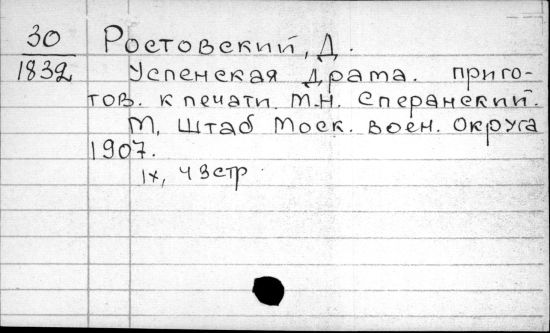 30
1832
Ростовский, Д.
Успенская драма. приго-
тов. к печати М.Н. Сперанский.
М, Штаб Моск. воен. Округа
1907.
IX, 43 стр